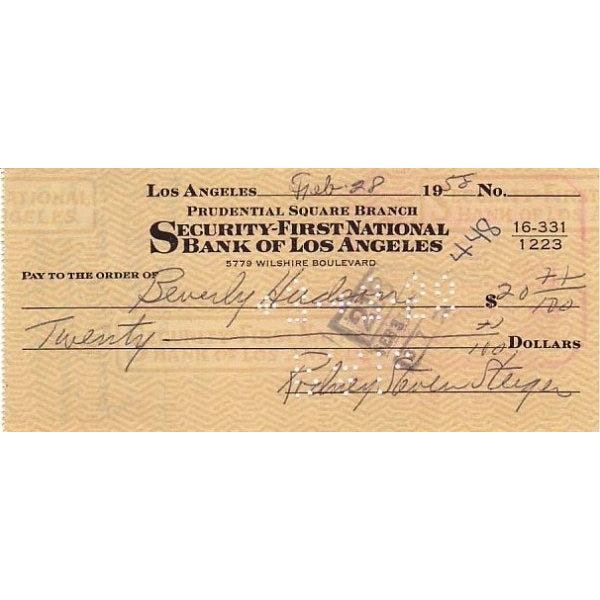 Los Angeles Feb. 28 1958 No.
Prudential Square Branch
Security-First National
Bank of Los Angeles
5779 Wilshire Boulevard
16-331
1223
Pay to the order of Beverly Hudson $20 xx/100
Twenty xx/100 Dollars
Rodney Steven Steiger